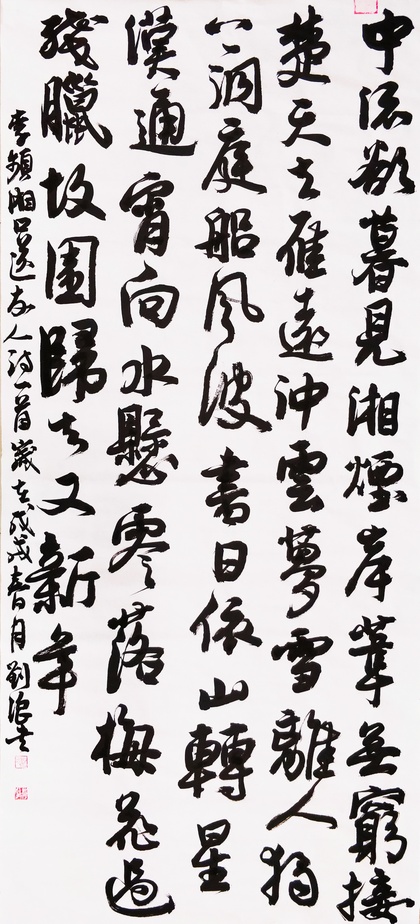 中流欲暮見湘煙岸葦無窮接
楚天去雁遠沖雲夢雪離人獨
上洞庭船風波盡日依山轉星
漢通宵向水懸零落梅花過
殘臘故園歸去又新年
李頻湘口送友人詩一首歲在戊戌春月劉